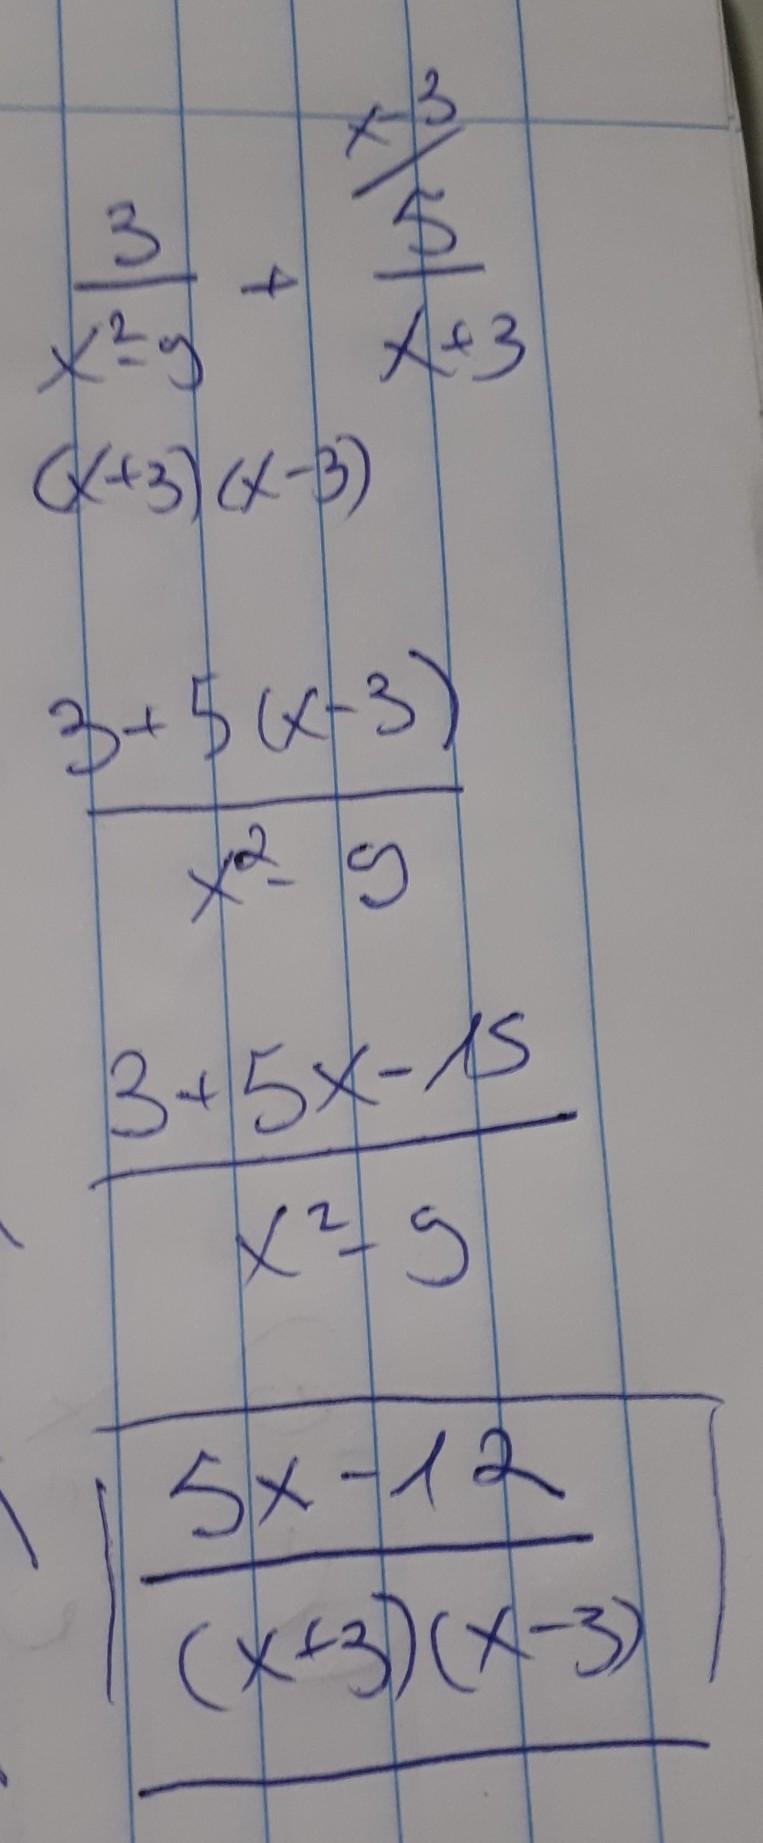 x-3
3/(x²-9) + 5/(x+3)
(x+3)(x-3)
3+5(x-3)
x²-9
3+5x-15
x²-9
5x-12
(x+3)(x-3)